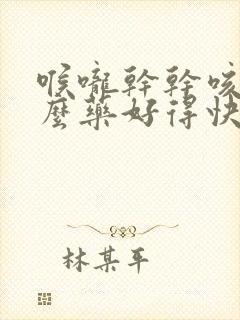 喉嚨幹幹咳
麼藥好得快
林某平